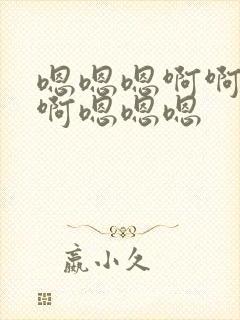 嗯嗯嗯啊啊
啊嗯嗯嗯
嬴小久